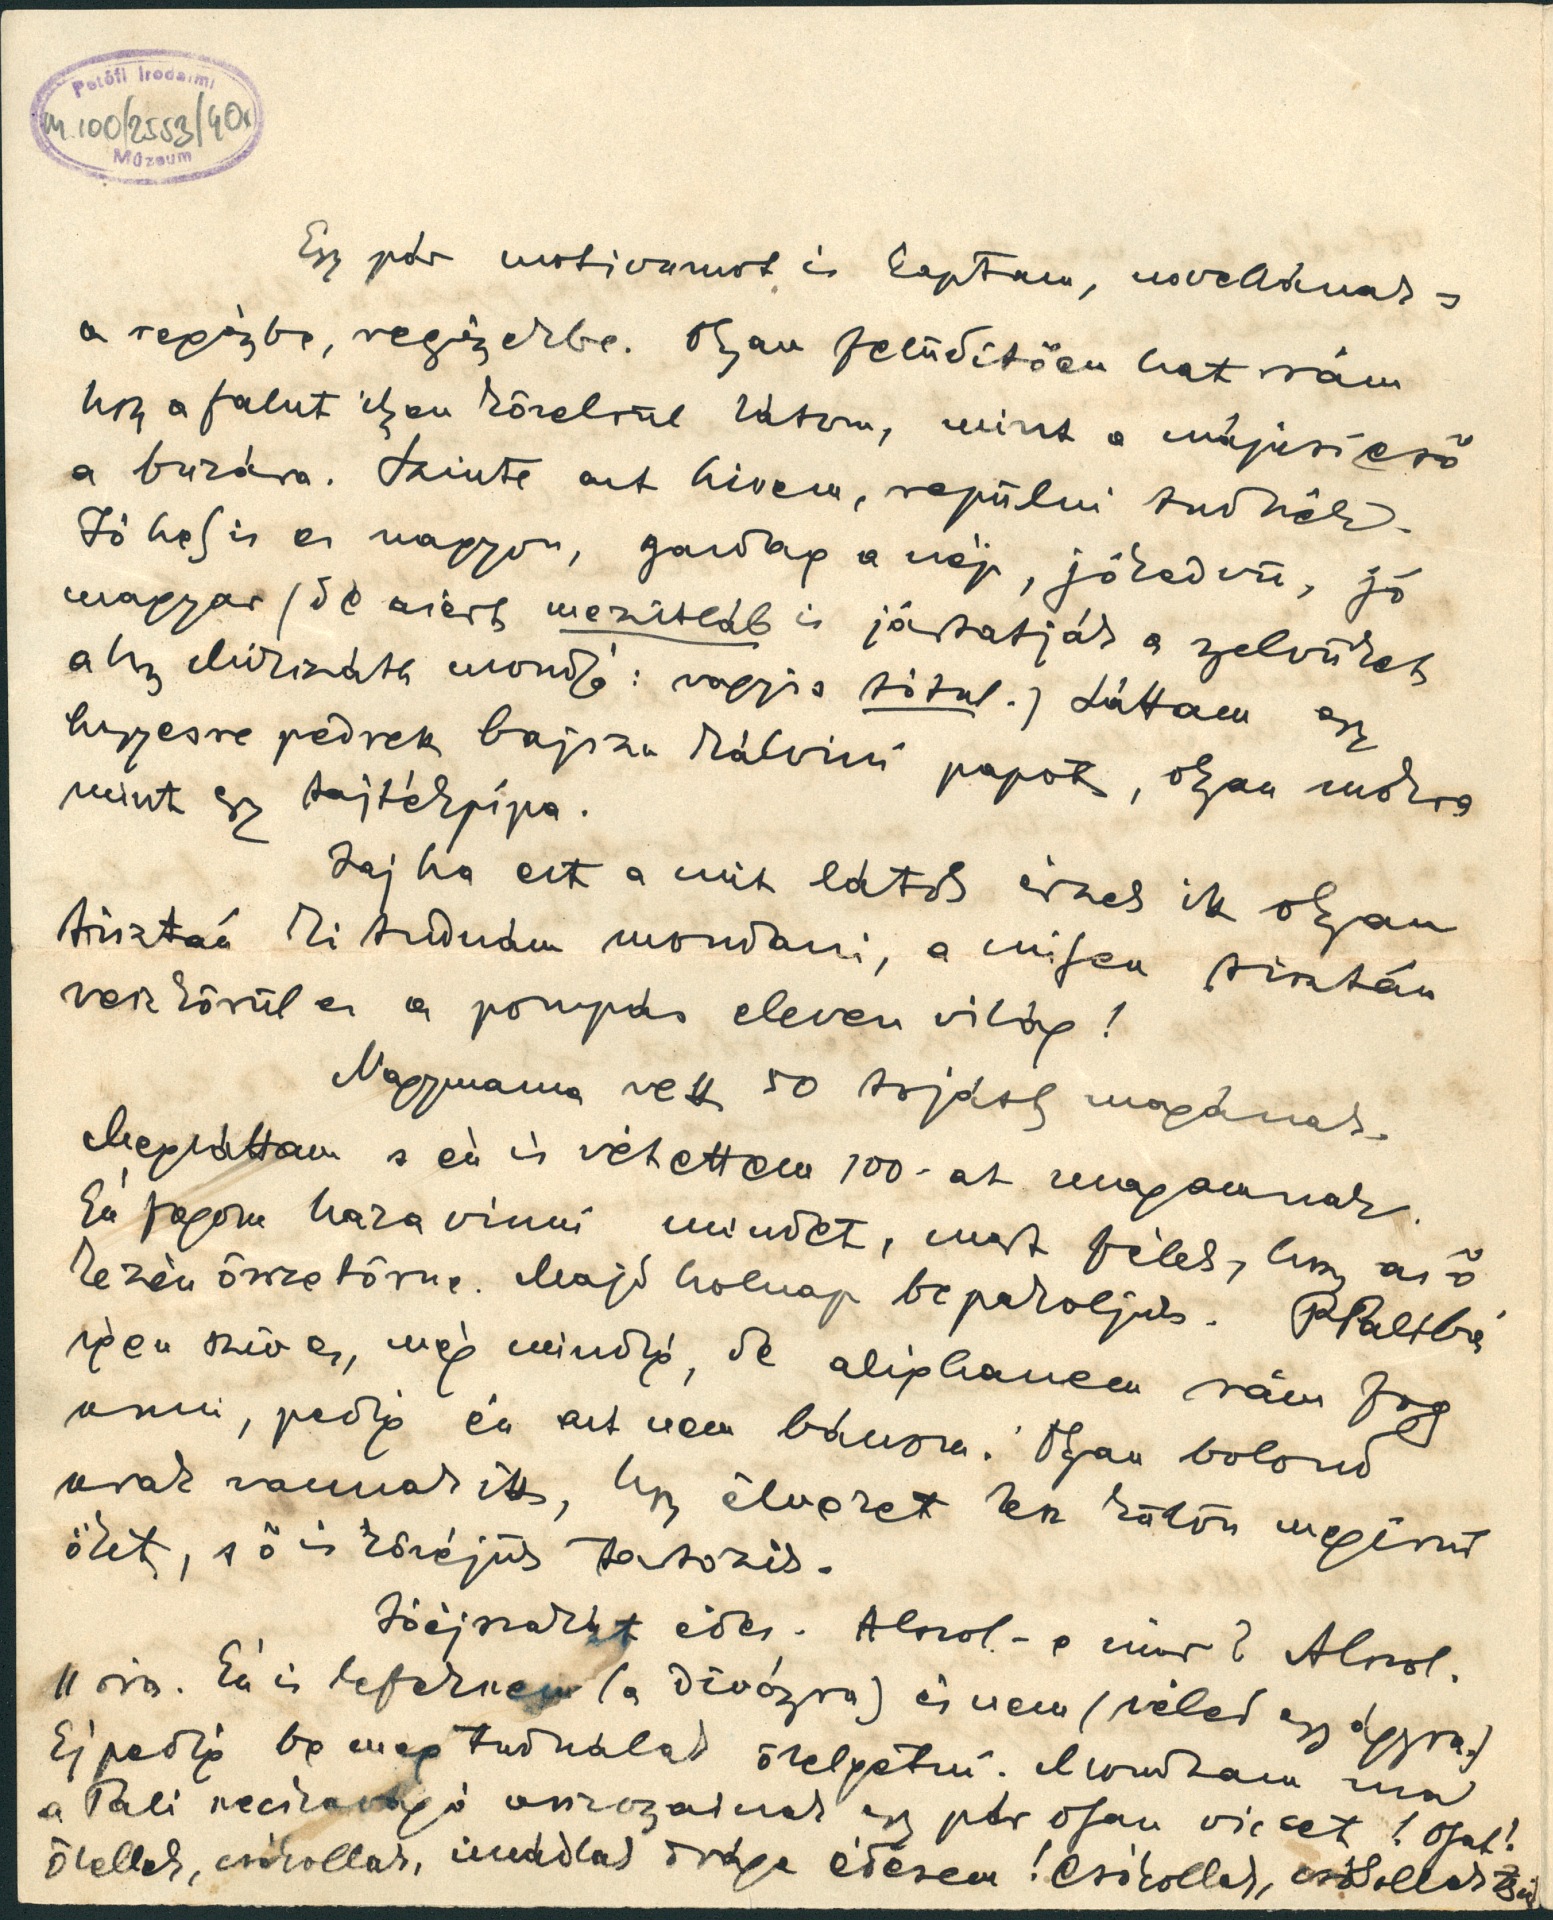 Petőfi Irodalmi
m.100/2553/40r
Múzeum
Egy pár motivumot is kaptam, novellának s
a regénybe, regényekbe. Olyan felüdítően hat rám
hogy a falut ilyen közelrül látom, mint a májusi eső
a buzára. Szinte azt hivem, repülni tudnék.
Jó hely is ez nagyon, gazdag a nép, jókedvü, jó
magyar (de azért mezitláb is jártatják a nyelvüket
ahogy Mikszáth mondja: vagyis tótul.) Láttam egy
hegyesre pedrett bajszu kálvini papot, olyan mókás
mint egy tajtékpipa.
Haj ha ezt a mit látok érzek itt olyan
tisztán ki tudnám mondani, a milyen tisztán
vesz körül ez a pompás eleven világ!
Nagymama vett 50 tojást magának.
Megláttam s én is vétettem 100-at magamnak.
Én fogom haza vinni mindet, mert félek, hogy az ő
kezén összetörne. Majd holnap bepakoljuk. Pali bá
igen szives, még mindig, de alighanem rám fog
unni, pedig én azt nem bánom. Olyan bolond
urak vannak itt, hogy élvezet lesz külön megírni
őket, s ő is közéjük tartozik.
Jóéjszakát édes. Alszol-e már? Alszol.
11 óra. Én is lefekszem (a díványra) és nem (véled egy ágyra.)
Ej pedig be meg tudnálak ölelgetni. Mondtam ma
a Pali asszonyainak egy pár olyan viccet! Olyat!
Ölellek, csókollak, imádlak drága édesem! Csókollak, csókollak